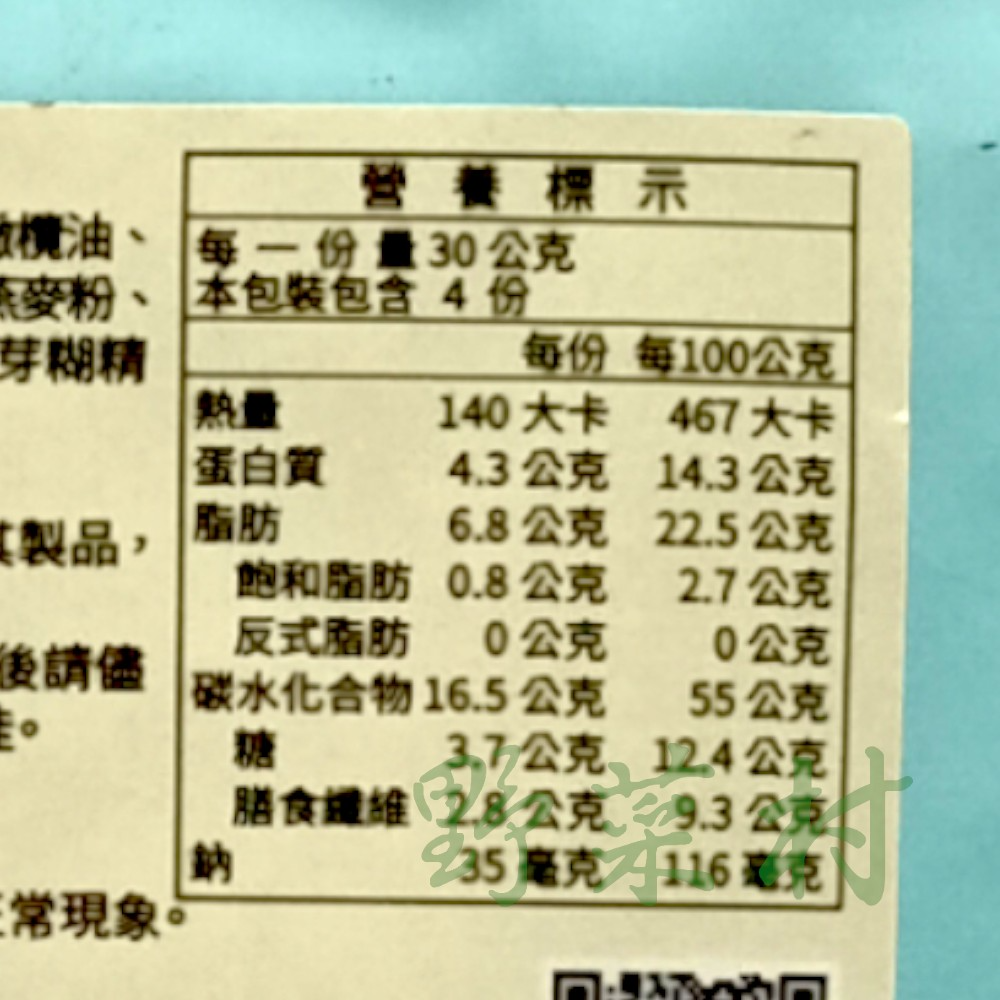 橄欖油、
燕麥粉、
芽糊精
其製品，
後請儘
佳。
正常現象。
營養標示
每一份量 30 公克
本包裝包含 4 份
每份 每100公克
熱量 140 大卡 467 大卡
蛋白質 4.3 公克 14.3 公克
脂肪 6.8 公克 22.5 公克
飽和脂肪 0.8 公克 2.7 公克
反式脂肪 0 公克 0 公克
碳水化合物 16.5 公克 55 公克
糖 3.7 公克 12.4 公克
膳食纖維 2.8 公克 9.3 公克
鈉 35 毫克 116 毫克
野菜村